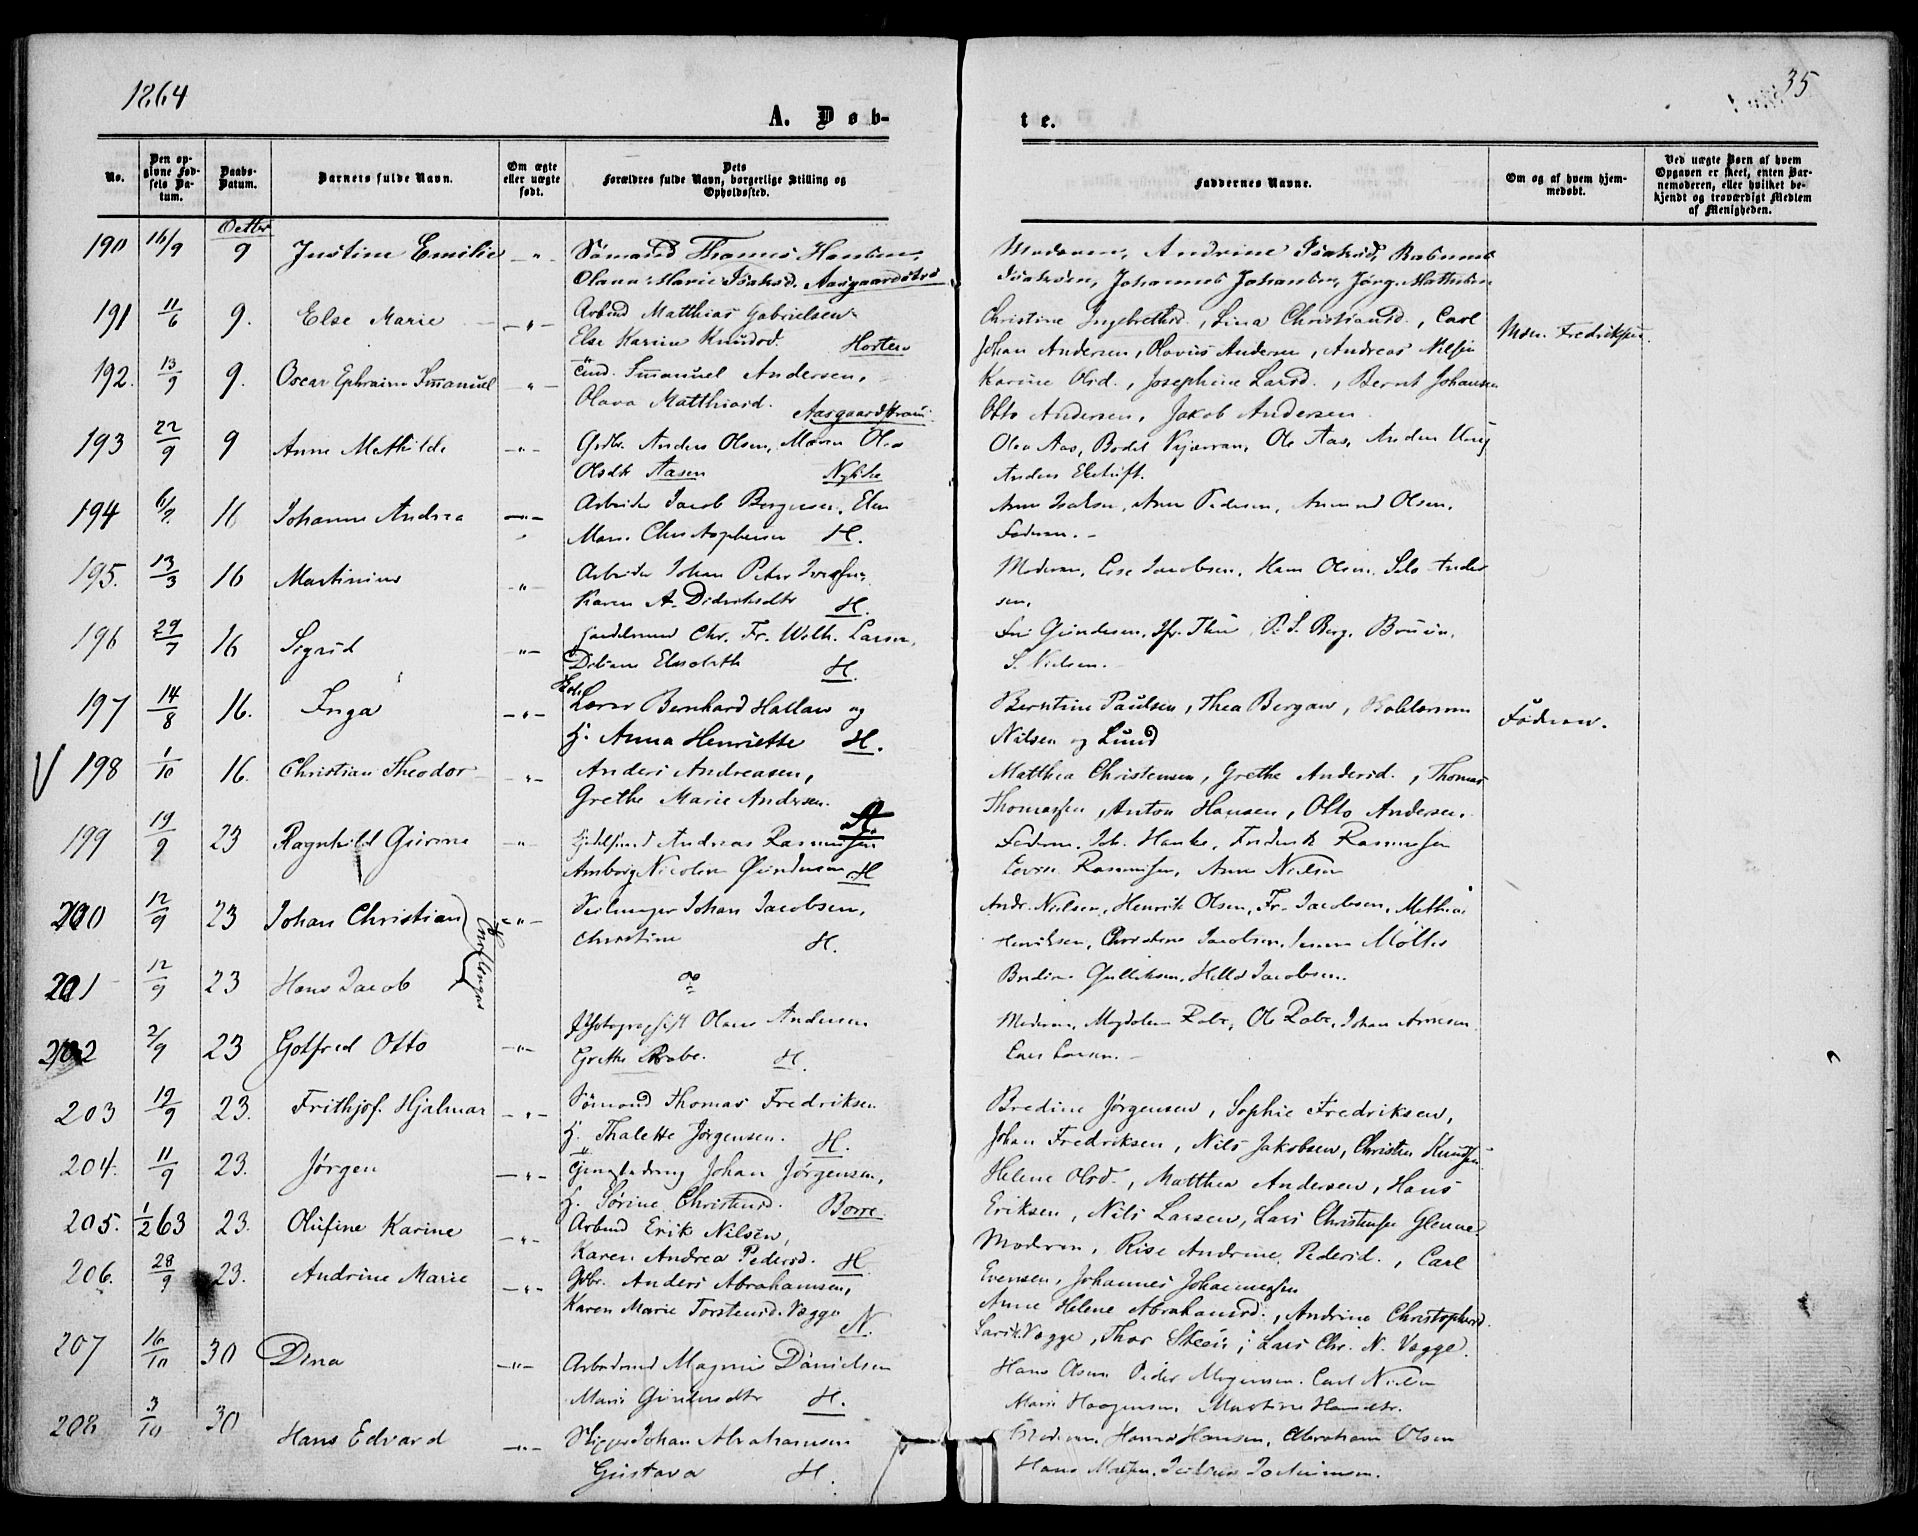 1864
35
A. Døb-
te.
No.
Den op-
givne Fød-
sels Da-
tum.
Daabs-
Datum.
Barnets fulde Navn.
Om ægte
eller uægte
født.
Dets
Forældres fulde Navn, borgerlige Stilling og
Opholdssted.
Faddernes Navne.
Om og af hvem hjem-
medøbt.
Ved uægte Børn af hvem
Opgaven er skeet, enten Bar-
nemoderen, eller hvilket be-
kjendt og troværdigt Medlem
af Menigheden.
Octbr
190 16/9 9 Justine Emilie -"- Sömand Thomas Hansen,
Olava Marie Isaksd. Aasgaardstrd
Moderen, Andrine Isaksd, Rasmus
Isaksen, Johannes Johansen, Jørg. Mathisen
191 11/6 9. Else Marie -"- Arbmd Matthias Gabrielsen
Else Karine Knudsd. Horten
Christine Ingebrethsd., Lina Christiansd., Carl
Johan Andersen, Olavus Andersen, Andreas Nilsen
Mdm. Fredriksen.
192. 13/9 9. Oscar Ephraim Immanuel -"- Immanuel Andersen,
Olava Matthiasd.
Karine Olsd., Josephine Larsd., Bernt Johansen
Otto Andersen, Jakob Andersen.
193 22/9 9 Anne Mathilde -"- Grdbr. Anders Olsen, Maren Olea
Olsdtr Aasen Nykirke
Olea Aas, Bodil, Ole Aas, Anders
Anders
194 6/7. 16 Johanne Andrea -"- Arbeider Jacob Borgersen, Elen
Mari Christophersen H.
Anne Isaksen, Anne Pedersen, Amund Olsen,
Faderen. -
195. 13/3 16 Martinius -"- Arbeider Johan Peter Iversen,
Karen A. Didriksdtr H.
Moderen, Lise Jacobsen, Hans Olsen, Nils Ander
sen.
196 29/7 16 Sigrid -"- Handelsmd Chr. Fr. Wilh. Larsen,
Elisabeth H.
Fru Gundersen, Jfr. Thu, P. S. Berg, Bruun,
S. Nielsen. -
197 14/8 16. Inga -"- Lærer Bernhard Hallan og
H. Anna Henriette H.
Berntine Paulsen, Thea Bergan,
Nilsen og Lund
Faderen.
V 198 1/10 16. Christian Theodor -"- Anders Andreasen,
Grethe Marie Andersen.
Matthea Christensen, Grethe Andersd., Thomas
Thomassen, Anton Hansen, Otto Andersen.
199 19/9 23 Ragnhild Gurine -"- Andreas Rasmussen
Amborg Nicoline Gundersen H
Faderen, Joh. Hanke, Frederik Rasmussen
Lovise Rasmussen, Anne Nielsen
200 12/9 23 Johan Christian -"- Seilmager Johan Jacobsen,
Christine H.
Andr. Nielsen, Henrik Olsen, Fr. Jacobsen, Mathias
Henriksen, Christine Jacobsen, Møller
Tvillinger
201 12/9 23 Hans Jacob do
Gulliksen, Hilda Jacobsen.
202 2/9 23 Gotfred Otto -"- Photographist Olaus Andersen
Grethe Rabe. H.
Moderen, Magdalene Rabe, Ole Rabe, Johan Arnesen
Lars Larsen. -
203 19/9 23. Frithjof Hjalmar -"- Sömand Thomas Fredriksen
H. Thalette Jørgensen. H.
Bredine Jørgensen, Sophie Fredriksen,
Johan Fredriksen, Nils Jakobsen, Christen Knudsen
204. 11/9 23. Jørgen -"- Johan Jørgensen,
H. Sørine Christensd. Borre
Helene Olsd., Matthea Andersen, Hans
Eriksen, Nils Larsen, Lars Christensen Glenne.
205. 1/2 63 23. Olufine Karine -"- Arbmd Erik Nilsen,
Karen Andrea Pedersd. H.
Moderen, Rise Andrine Pedersd., Carl
Evensen, Johannes Johannessen
206. 28/9 23. Andrine Marie -"- Gdbr. Anders Abrahamsen,
Karen Marie Torstensd. Vegge N.
Anne Helene Abrahamsd., Andrine Christophersd.
Vegge, Thor Steen, Lars Chr. N. Vegge.
207 16/10 30 Dina -"- Arbeidsmd Magnus Danielsen
Maria Gundersdtr H.
Hans Olsen, Peder Mogensen, Carl Nielsen
Marie Haagensen, Martine Hansdtr.
208 3/10 30 Hans Edvard -"- Skipper Johan Abrahamsen
Gustava H.
Moderen, Hanna Hansen, Abraham Olsen
Hans, Julius Jochimsen.